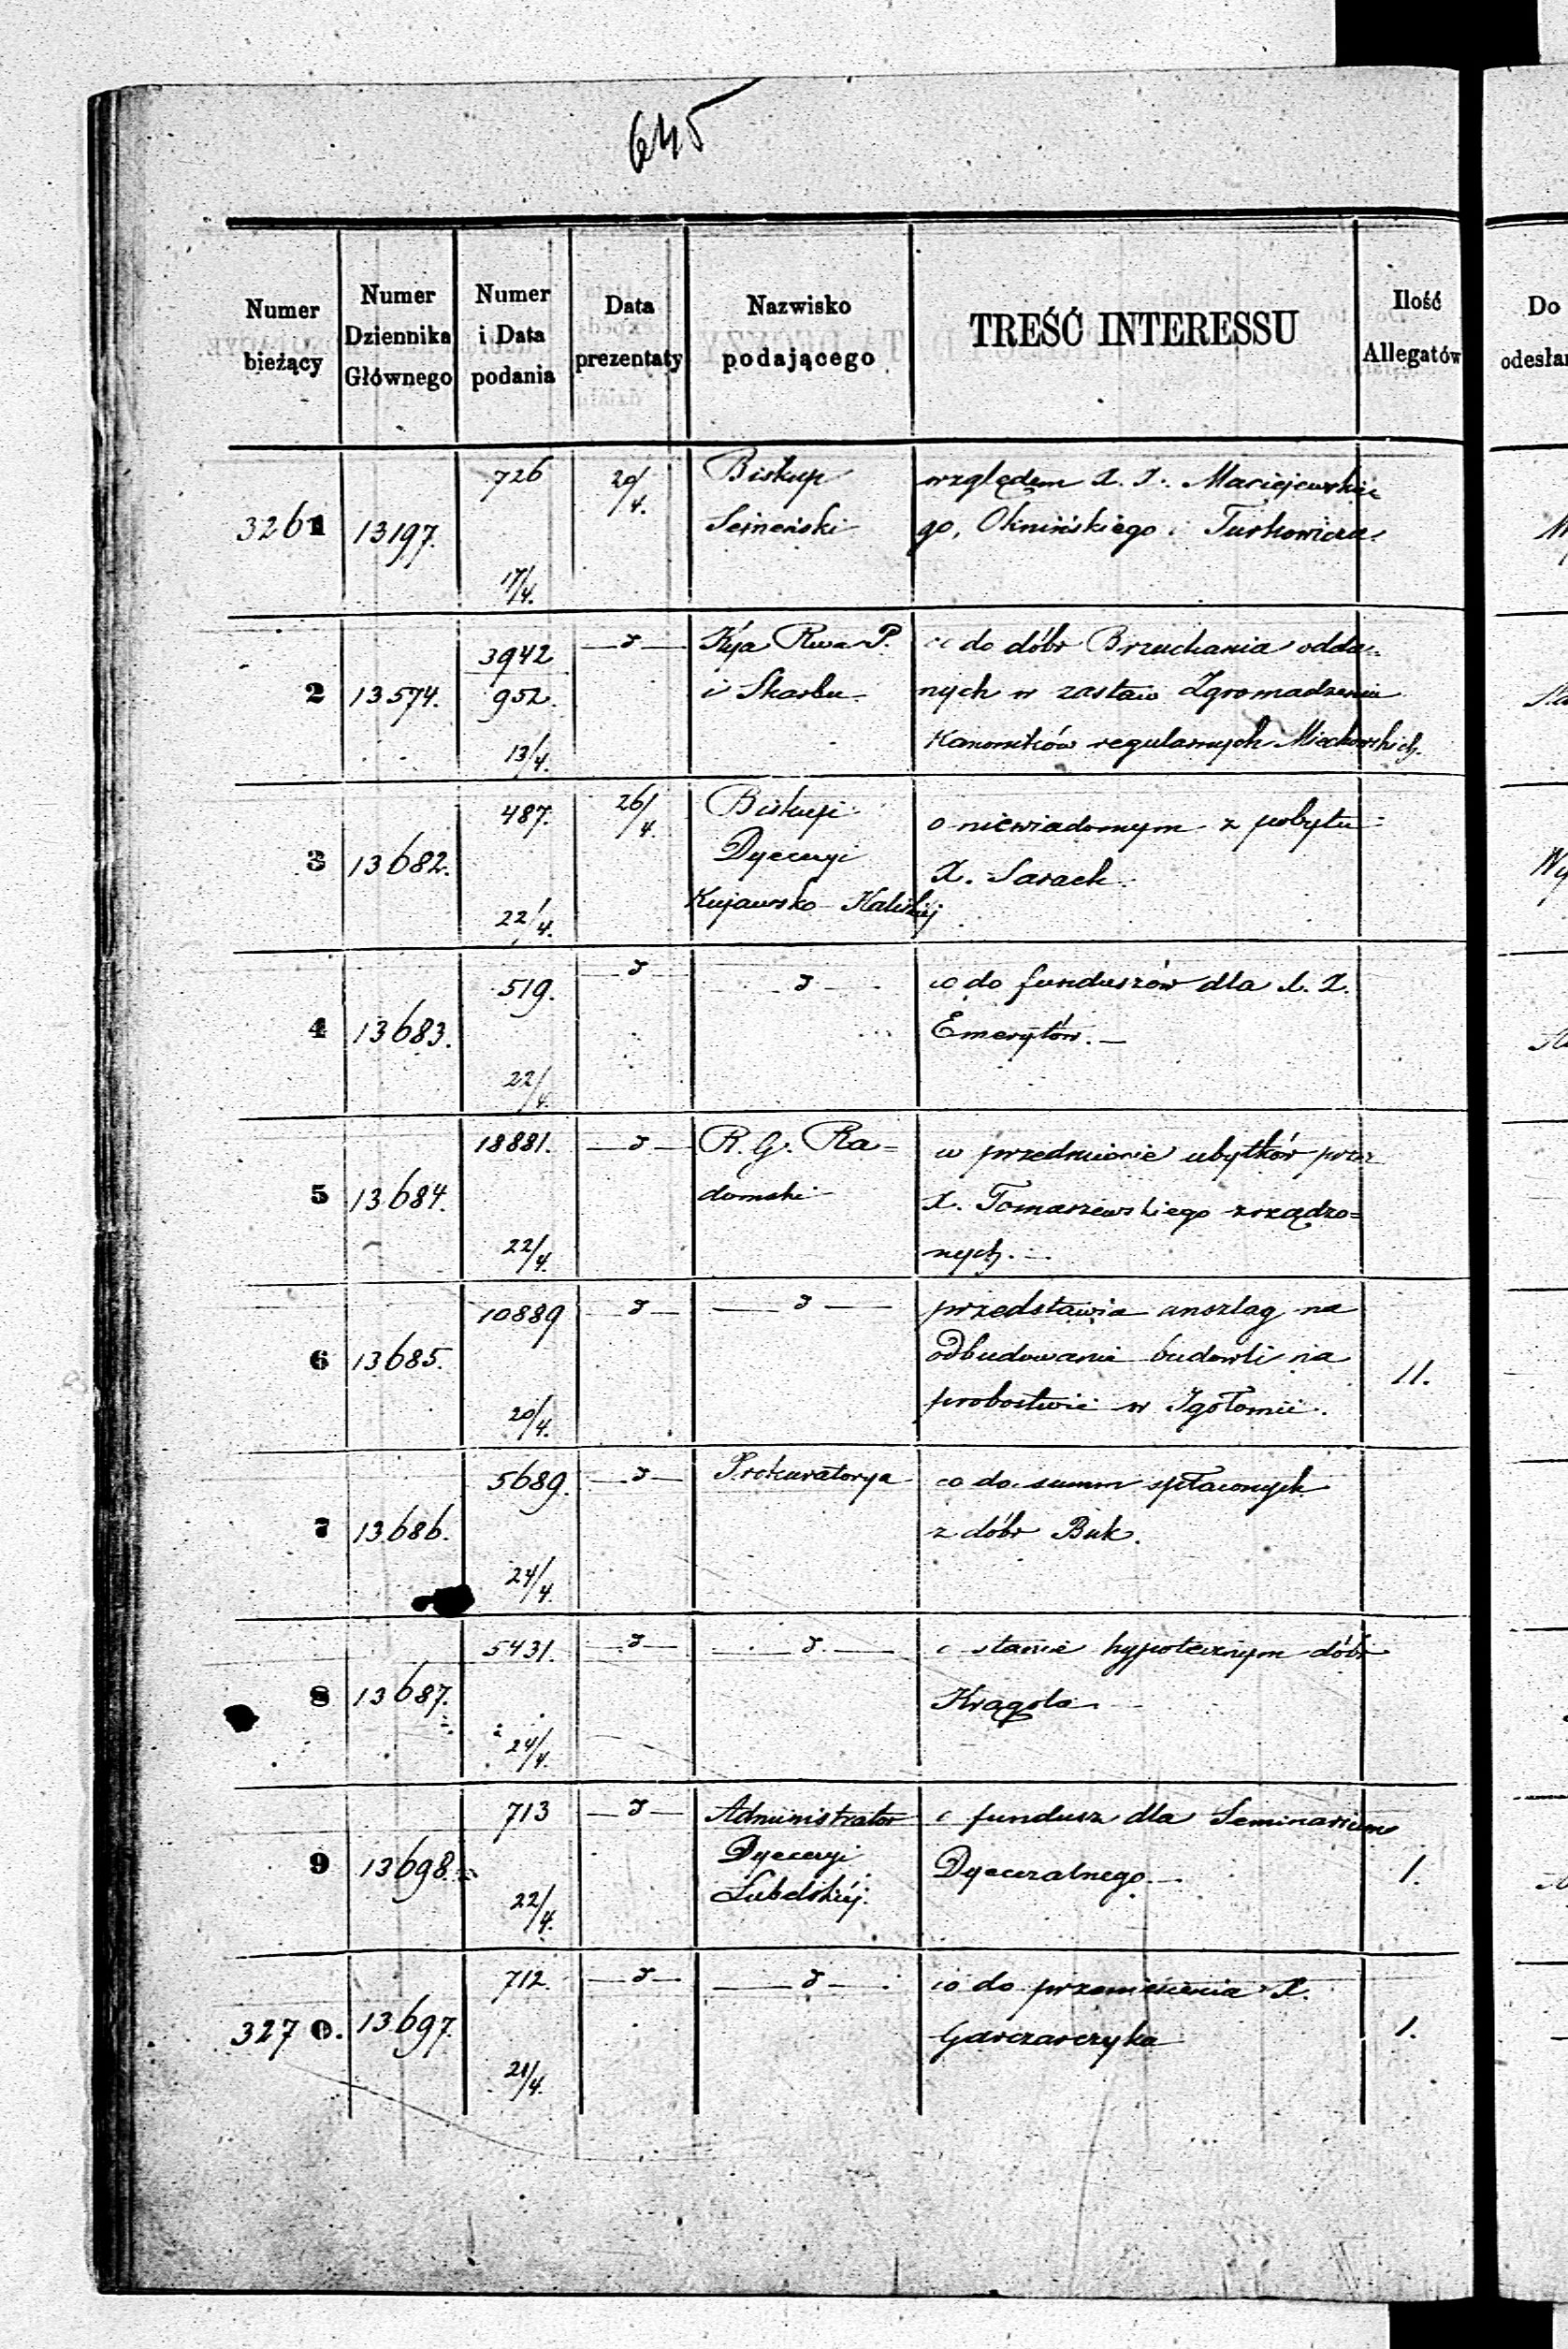 645
Numer bieżący
Numer Dziennika Głównego
Numer i Data podania
Data prezentaty
Nazwisko podającego
TREŚĆ INTERESSU
Ilość Allegatów
Do
3261
13197.
726
17/4.
20/4.
Biskup
Sejneński
względem X. X. Maciejewskie
go, Oknińskiego i Turkowicza.
2
13574.
3942
952.
13/4.
— d —
Kya Rwa P.
i Skarbu
co do dóbr Brzuchania odda=
nych w zastaw Zgromadzenia
Kanoników regularnych Miechowskich.
3
13682.
487.
22/4.
26/4.
Biskup
Dyecezyi
Kujawsko Kaliskiej
o niewiadomym z pobytu
X. Sarach.
4
13683.
519.
22/4.
— d —
— d —
co do funduszów dla X. X.
Emerytów. —
5
13684.
18881.
22/4.
— d —
R. G. Ra=
domski
w przedmiocie ubytków przez
X. Tomaszewskiego zrządzo=
nych. —
6
13685.
10889
20/4.
— d —
— d —
przedstawia anszlag na
odbudowanie budowli na
probostwie w Igołomii.
11.
7
13686.
5689.
24/4.
— d —
Prokuratorya
co do summ spłaconych
z dóbr Buk.
8
13687.
5431.
24/4.
— d —
— d —
o stanie hypotecznym dóbr
Krągola
9
13698.
713
22/4.
— d —
Administrator
Dyecezyi
Lubelskiéj.
o fundusz dla Seminarium
Dyecezalnego. —
1.
3270.
13697.
712.
21/4.
— d —
— d —
co do przeniesienia X.
Garczarczyka
1.